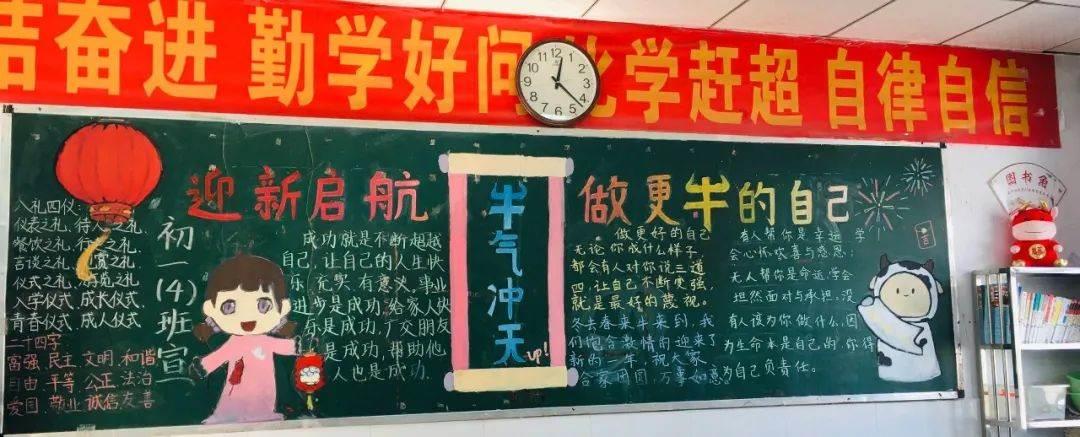 结奋进 勤学好问 比学赶超 自律自信
12
1
2
3
4
5
6
7
8
9
10
11
迎新启航
入礼四仪:
仪表之礼、待人之礼
餐饮之礼、行走之礼
言谈之礼、观赏之礼
仪式之礼、游览之礼
入学仪式 成长仪式
青春仪式 成人仪式
二十四字
富强 民主 文明 和谐
自由 平等 公正 法治
爱国 敬业 诚信 友善
初一(4)班宣
成功就是不断超越
自己,让自己的人生快
乐、充实、有意义。事业
进步是成功,给家人快
乐是成功,广交朋友
是成功,帮助他
人也是成功.
牛气冲天
up!
做更牛的自己
做更好的自己
无论你成什么样子
都会有人对你说三道
四,让自己不断变强,
就是最好的蔑视。
冬去春来牛来到,我
们饱含激情的迎来了
新的一年,祝大家
合家团圆,万事如意
有人帮你是幸运,学
会心怀欣喜与感恩;
无人帮你是命运,学会
坦然面对与承担。没
有人该为你做什么,因
为生命本是自己的,你得
为自己负责任。
吉
图书角